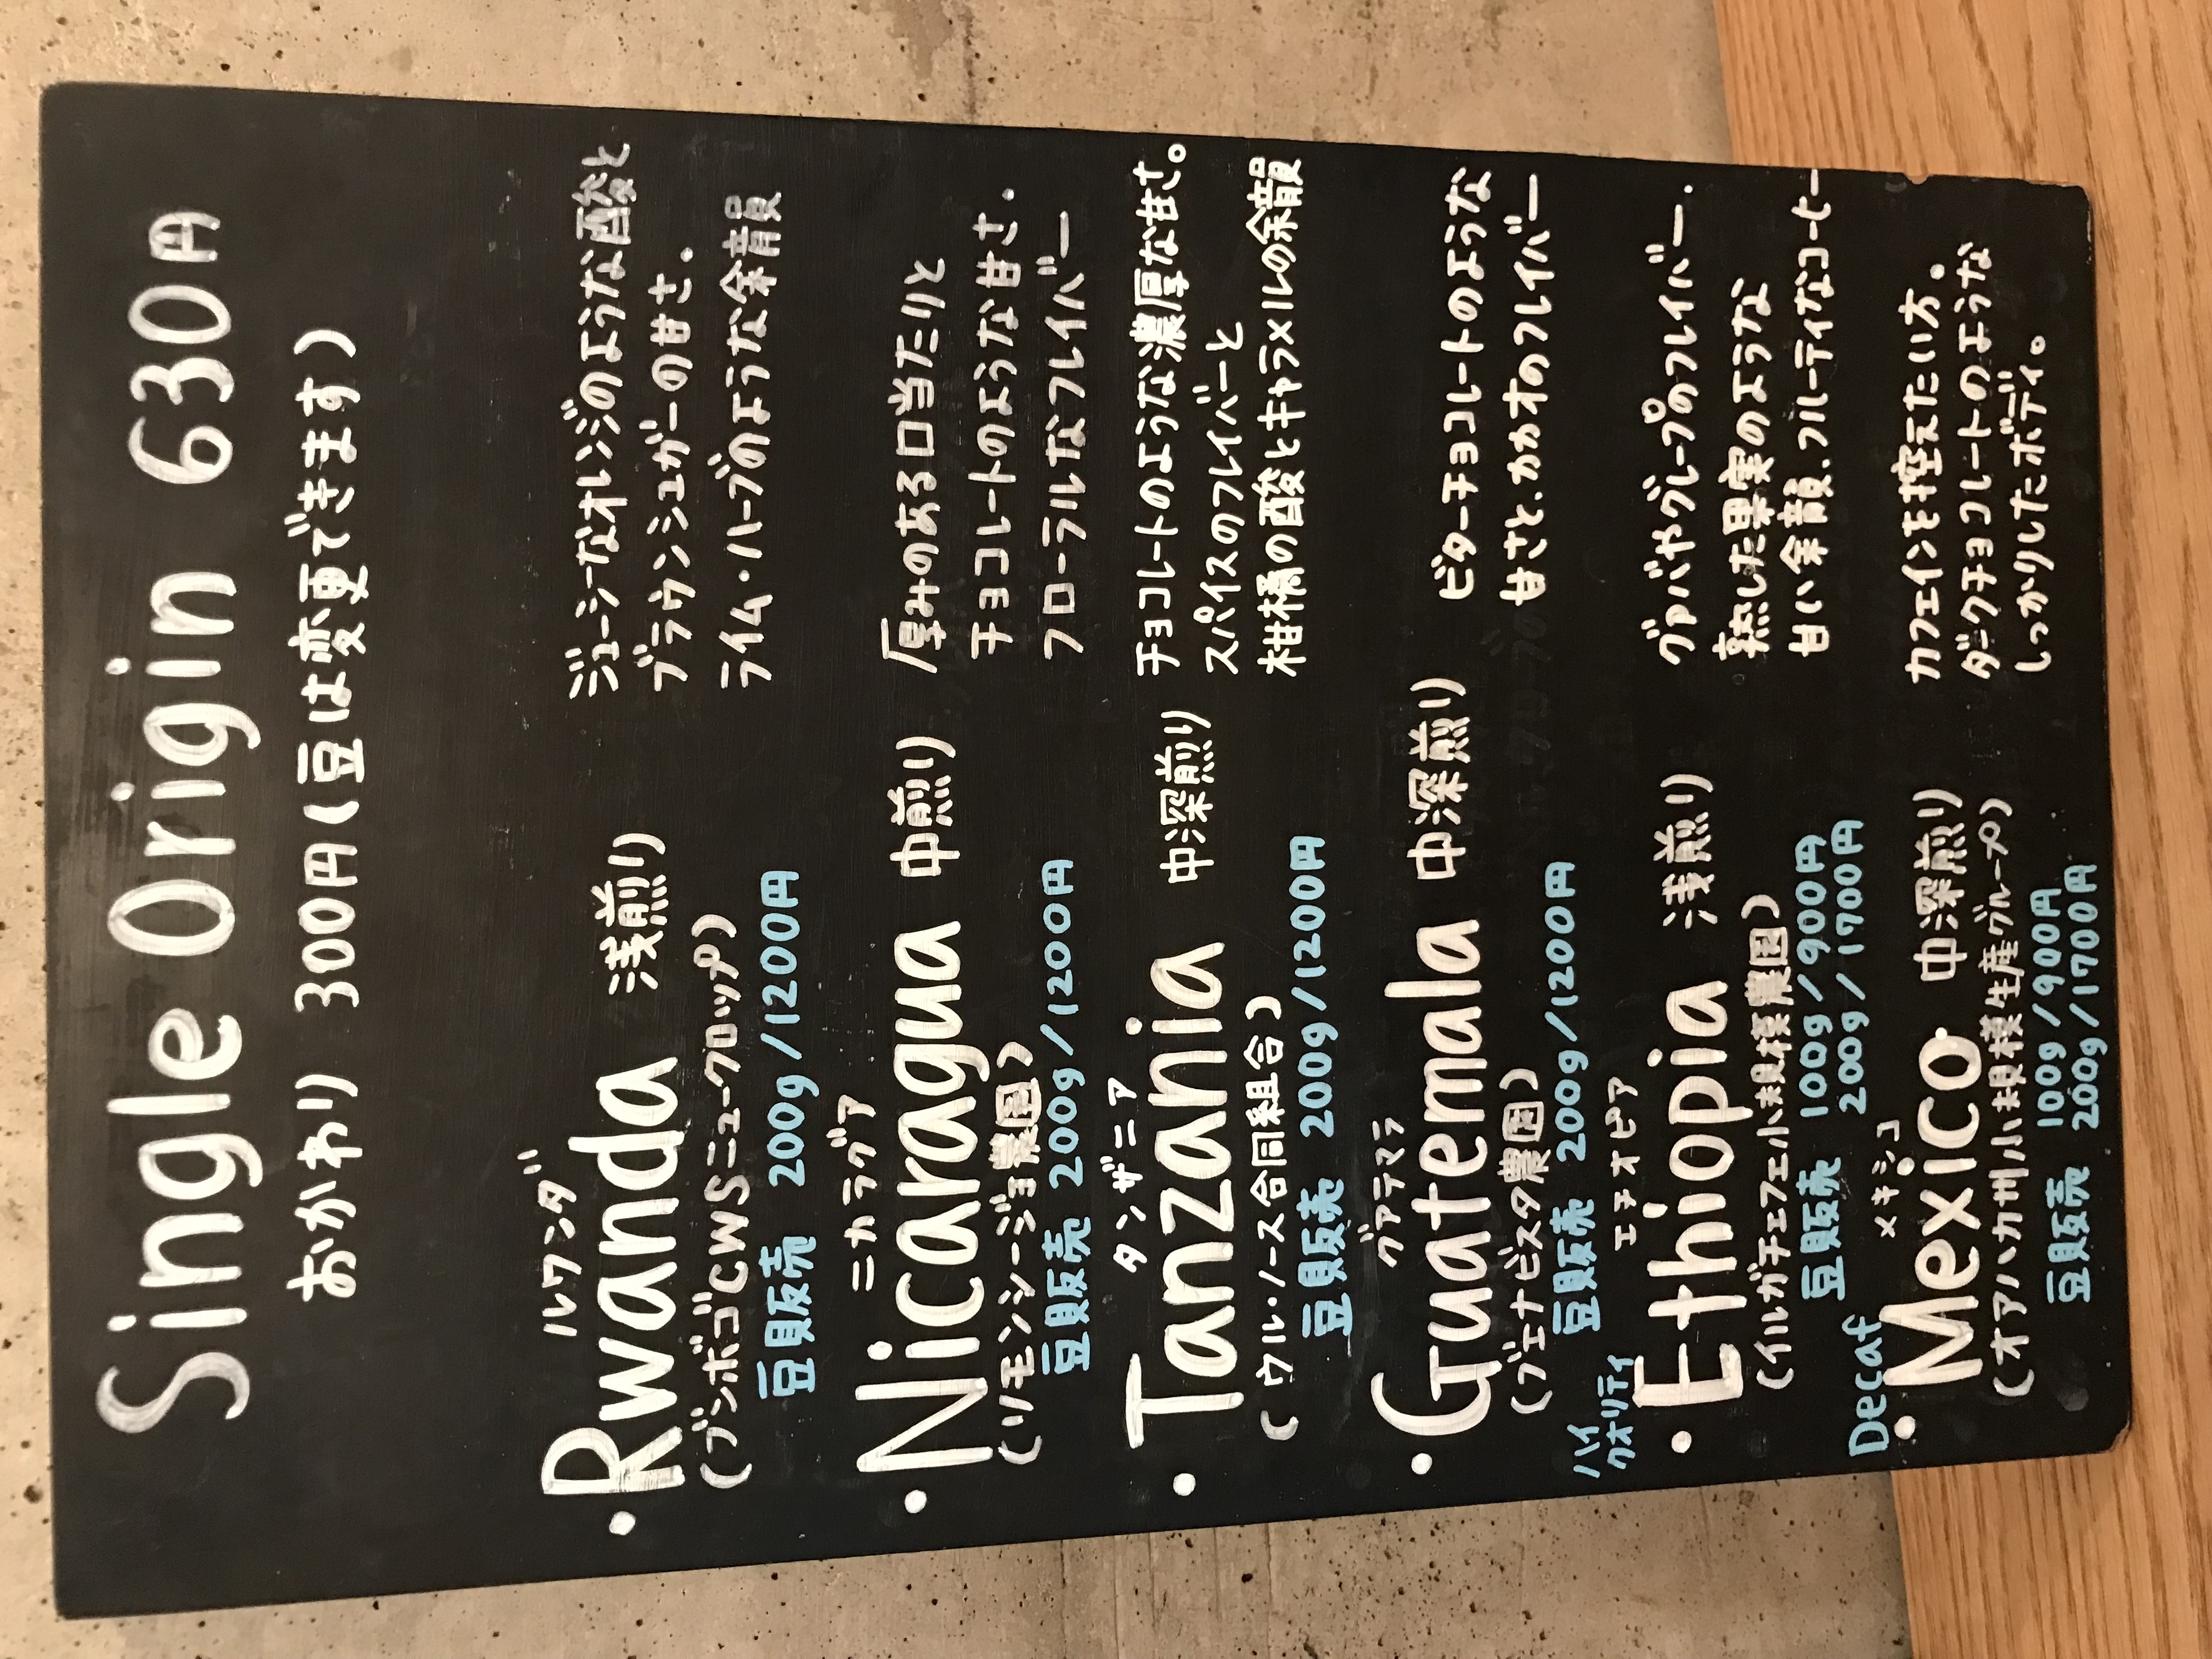 Single Origin 630円
おかわり 300円(豆は変更できます)
ルワンダ
・Rwanda 浅煎り
(ブンボゴCWSニュークロップ)
豆販売 200g/1200円
ジューシーなオレンジのような酸と
ブラウンシュガーの甘さ.
ライム・ハーブのような余韻
ニカラグア
・Nicaragua 中煎り
(リモンシージョ農園)
豆販売 200g/1200円
厚みのある口当たりと
チョコレートのような甘さ.
フローラルなフレイバー
タンザニア
・Tanzania 中深煎り
(ウル・ノース合同組合)
豆販売 200g/1200円
チョコレートのような濃厚な甘さ。
スパイスのフレイバーと
柑橘の酸とキャラメルの余韻
グァテマラ
・Guatemala 中深煎り
(ブエナビスタ農園)
豆販売 200g/1200円
ビターチョコレートのような
甘さと、カカオのフレイバー
ハイ
クオリティ
エチオピア
・Ethiopia 浅煎り
(イルガチェフェ小規模農園)
豆販売 100g/900円
200g/1700円
グァバやグレープのフレイバー.
熟した果実のような
甘い余韻、フルーティなコーヒー
Decaf
メキシコ
・Mexico 中深煎り
(オアハカ州小規模生産グループ)
豆販売 100g/900円
200g/1700円
カフェインを控えたい方.
ダークチョコレートのような
しっかりしたボディ。